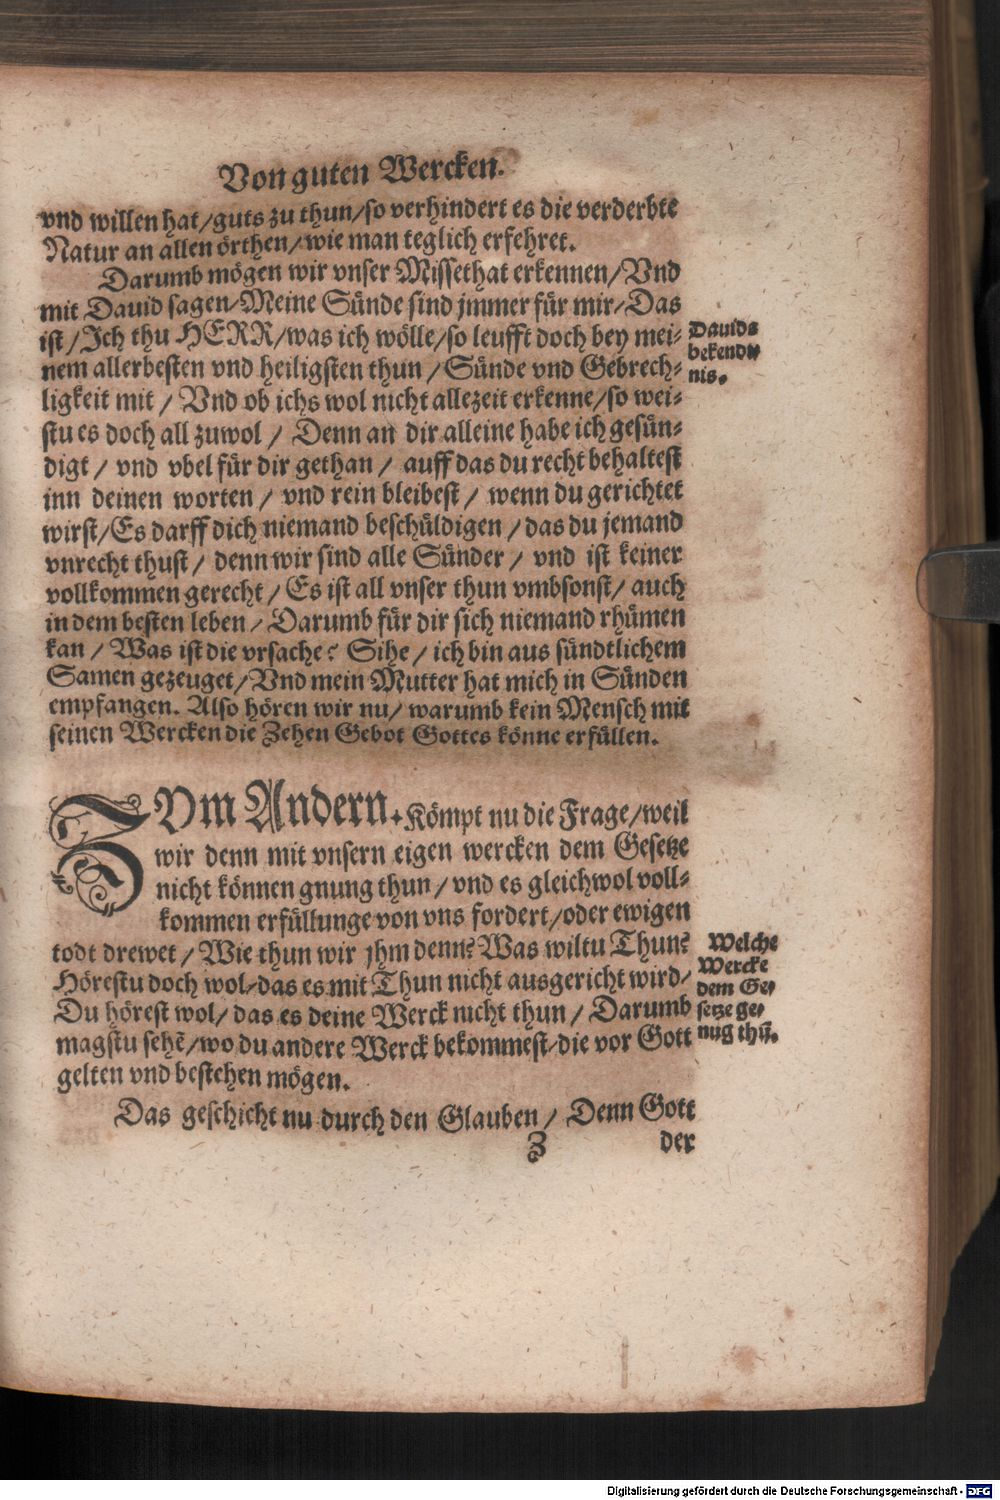 Von guten Wercken.
vnd willen hat/guts zu thun/so verhindert es die verderbte
Natur an allen örthen/wie man teglich erfehret.
Darumb mögen wir vnser Missethat erkennen/Vnd
mit Dauid sagen/Meine Sünde sind jmmer für mir/Das
ist/Ich thu HERR/was ich wölle/so leufft doch bey mei-
nem allerbesten vnd heiligsten thun/Sünde vnd Gebrech-
ligkeit mit/Vnd ob ichs wol nicht allezeit erkenne/so wei-
stu es doch all zuwol/Denn an dir alleine habe ich gesün-
digt/vnd vbel für dir gethan/auff das du recht behaltest
inn deinen worten/vnd rein bleibest/wenn du gerichtet
wirst/Es darff dich niemand beschüldigen/das du jemand
vnrecht thust/denn wir sind alle Sünder/vnd ist keiner
vollkommen gerecht/Es ist all vnser thun vmbsonst/auch
in dem besten leben/Darumb für dir sich niemand rhümen
kan/Was ist die vrsache? Sihe/ich bin aus sündtlichem
Samen gezeuget/Vnd mein Mutter hat mich in Sünden
empfangen. Also hören wir nu/warumb kein Mensch mit
seinen Wercken die Zehen Gebot Gottes könne erfüllen.
Dauids
bekendt-
nis.
ZVm Andern. Kömpt nu die Frage/weil
wir denn mit vnsern eigen wercken dem Gesetze
nicht können gnung thun/vnd es gleichwol voll-
kommen erfüllunge von vns fordert/oder ewigen
todt drewet/Wie thun wir jhm denn? Was wiltu Thun?
Hörestu doch wol/das es mit Thun nicht ausgericht wird/
Du hörest wol/das es deine Werck nicht thun/Darumb
magstu sehē/wo du andere Werck bekommest/die vor Gott
gelten vnd bestehen mögen.
Welche
Wercke
dem Ge-
setze ge-
nug thū.
Das geschicht nu durch den Glauben/Denn Gott
Z der
Digitalisierung gefördert durch die Deutsche Forschungsgemeinschaft - DFG